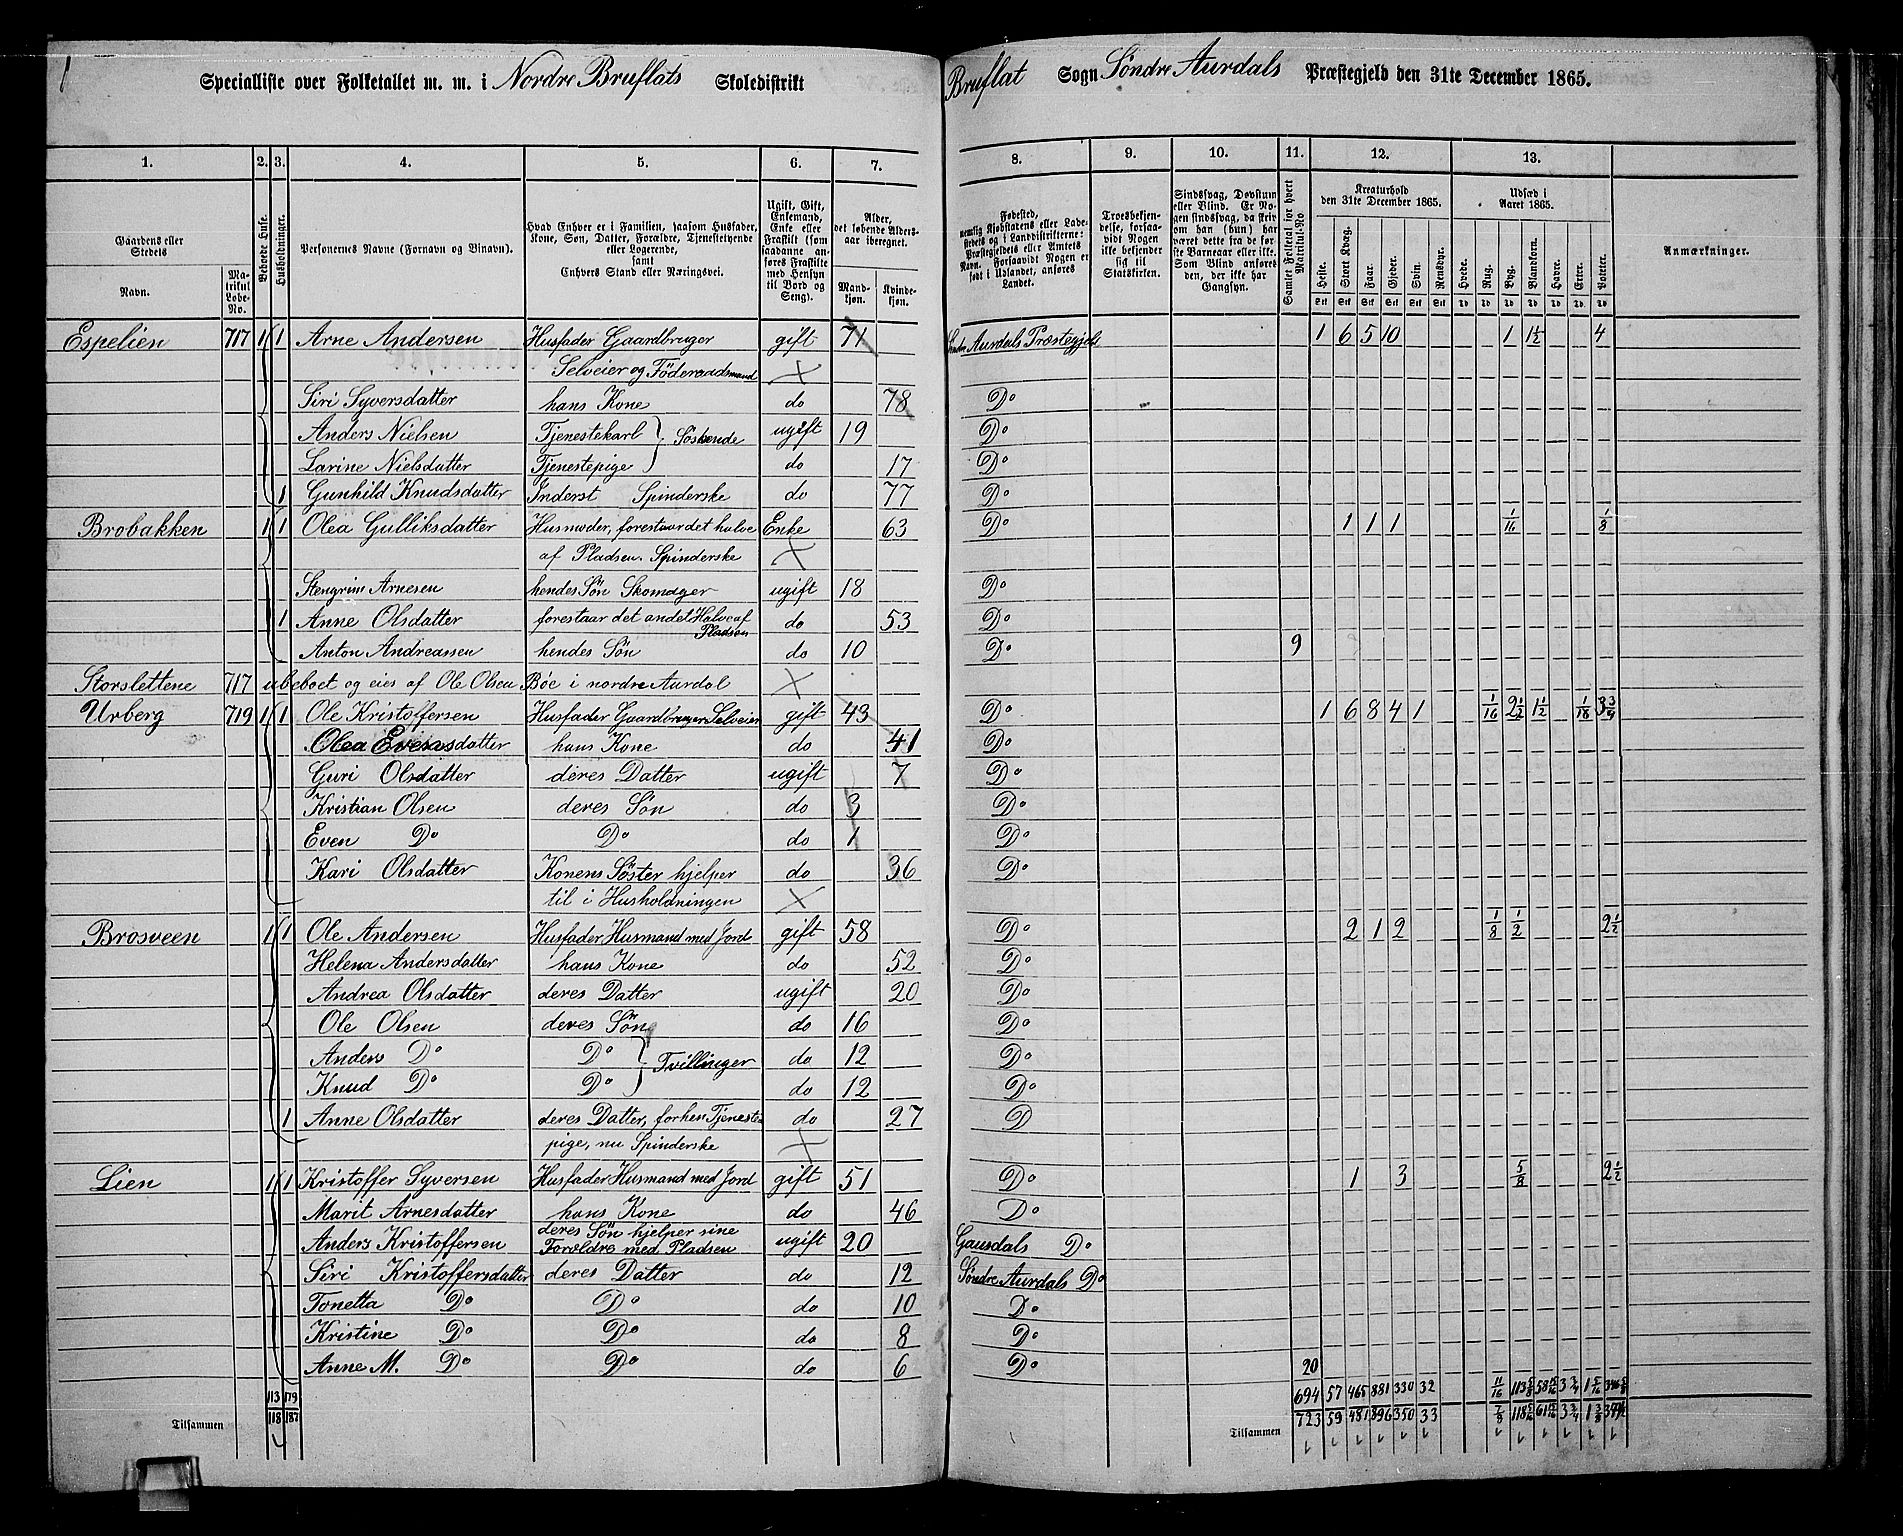 Specialliste over Folketallet m. m. i Nordre Bruflats Skoledistrikt Bruflat Sogn Söndre Aurdals Præstegjeld den 31te December 1865.
1. 2. 3. 4. 5. 6. 7. 8. 9. 10. 11. 12. 13.
Gaardens eller Stedets Navn. Matrikul Løbe-No. Beboede Huse. Husholdninger. Personernes Navne (Fornavn og Binavn). Hvad Enhver er i Familien, saasom Husfader, Kone, Søn, Datter, Forældre, Tjenestetyende eller Logerende, samt Enhvers Stand eller Næringsvei. Ugift, Gift, Enkemand, Enke eller Fraskilt (som saadanne anføres Fraskilte med Hensyn til Bord og Seng). Alder, det løbende Alders-aar iberegnet. Mandkjøn. Kvindekjøn.
Fødested, nemlig Kjøbstadens eller Ladestedets og i Landdistrikterne: Præstegjeldets eller Amtets Navn. Forsaavidt Nogen er født i Udlandet, anføres Landet. Troesbekjendelse, forsaavidt Nogen ikke bekjender sig til Statskirken. Sindssvag, Døvstum eller Blind. Er Nogen sindssvag, da skriv om han (hun) har været dette fra de første Barneaar eller ikke. Som Blind anføres den, der ikke har Gangsyn. Samlet Folketal for hvert Matrikul-No Kreaturhold den 31te December 1865. Heste. Stort Kvæg. Faar. Gjeder. Svin. Rensdyr. Udsæd i Aaret 1865. Hvede. Rug. Byg. Blandkorn. Havre. Erter. Poteter. Anmærkninger.
Espelien 717 1 1 Arne Andersen Husfader Gaardbruger gift 71 Söndre Aurdals Præstegjeld 1 6 5 10 1 1½ 4
Selveier og Föderaadsmand
Siri Syversdatter hans Kone do 78 Do
Anders Nielsen Tjenestekarl Söskende ugift 19 Do
Larine Nielsdatter Tjenestepige do 17 Do
1 Gunhild Knudsdatter Inderst Spinderske do 77 Do
Brobakken 1 1 Olea Gulliksdatter Husmoder, forestaar det halve Enke 63 Do 1 1 1 1/16 1/8
af Pladsen. Spinderske
Stengrim Arnesen hendes Sön Skomager ugift 18 Do
1 Anne Olsdatter forestaar det andet Halve af Pladsen do 53 Do
Anton Andreassen hendes Sön do 10 Do 9
Storslettene 717 ubeboet og eies af Ole Olsen Böe i nordre Aurdal
Urberg 719 1 1 Ole Kristoffersen Husfader Gaardbruger Selveier gift 43 Do 1 6 8 4 1 1/16 2½ 1½ 1/18 3
Olea Evensdatter hans Kone do 41 Do
Guri Olsdatter deres Datter ugift 7 Do
Kristian Olsen deres Sön do 3 Do
Even Do Do do 1 Do
Kari Olsdatter Konens Söster hjelper do 36 Do
til i Husholdningen
Brosveen 1 1 Ole Andersen Husfader Husmand med Jord gift 58 Do 2 1 2 1/8 1/2 2½
Helena Andersdatter hans Kone do 52 Do
Andrea Olsdatter deres Datter ugift 20 Do
Ole Olsen deres Sön do 16 Do
Anders Do Do Tvillinger do 12 Do
Knud Do Do do 12 Do
1 Anne Olsdatter deres Datter, forhen Tjeneste- do 27 D
pige, nu Spinderske
Lien 1 1 Kristoffer Syversen Husfader Husmand med Jord gift 51 Do 1 3 5/8 2½
Marit Arnesdatter hans Kone do 46 Do
Anders Kristoffersen deres Sön hjelper sine Forældre med Pladsen ugift 20 Gausdals Do
Siri Kristoffersdatter deres Datter do 12 Söndre Aurdals Do
Tonetta Do Do do 10 Do
Kristine Do Do do 8 Do
Anne M. Do Do do 6 Do 20
113 179 694 57 465 881 330 32 11/16
Tilsammen 118 187 Tilsammen 723 59 481 896 350 33 7/8